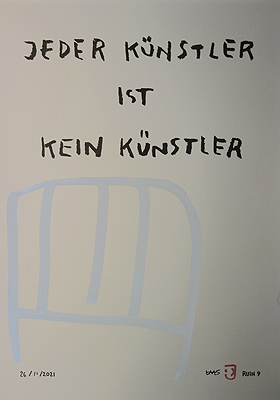 JEDER KÜNSTLER
IST
KEIN KÜNSTLER
26/11/2021
RUIN 9